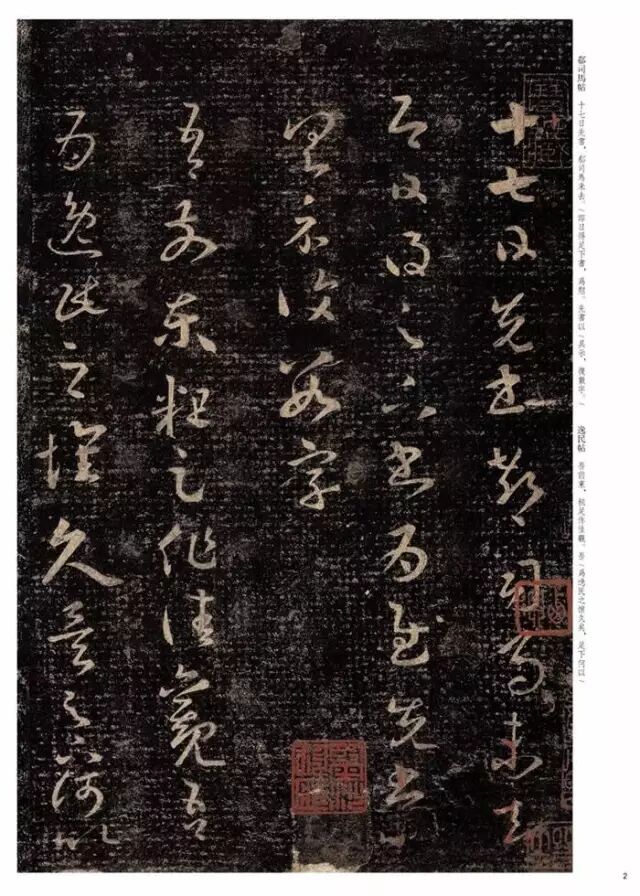 郗司馬帖　十七日先書，郗司馬未去。/即日得足下書，爲慰。先書以/具示，復數字。/　逸民帖　吾前東，粗足作佳觀。吾/爲逸民之懷久矣，足下何以/
十七日先書郗司馬未去
即日得足下書爲慰先書以
具示復數字
吾前東粗足作佳觀吾
爲逸民之懷久矣足下何以
2